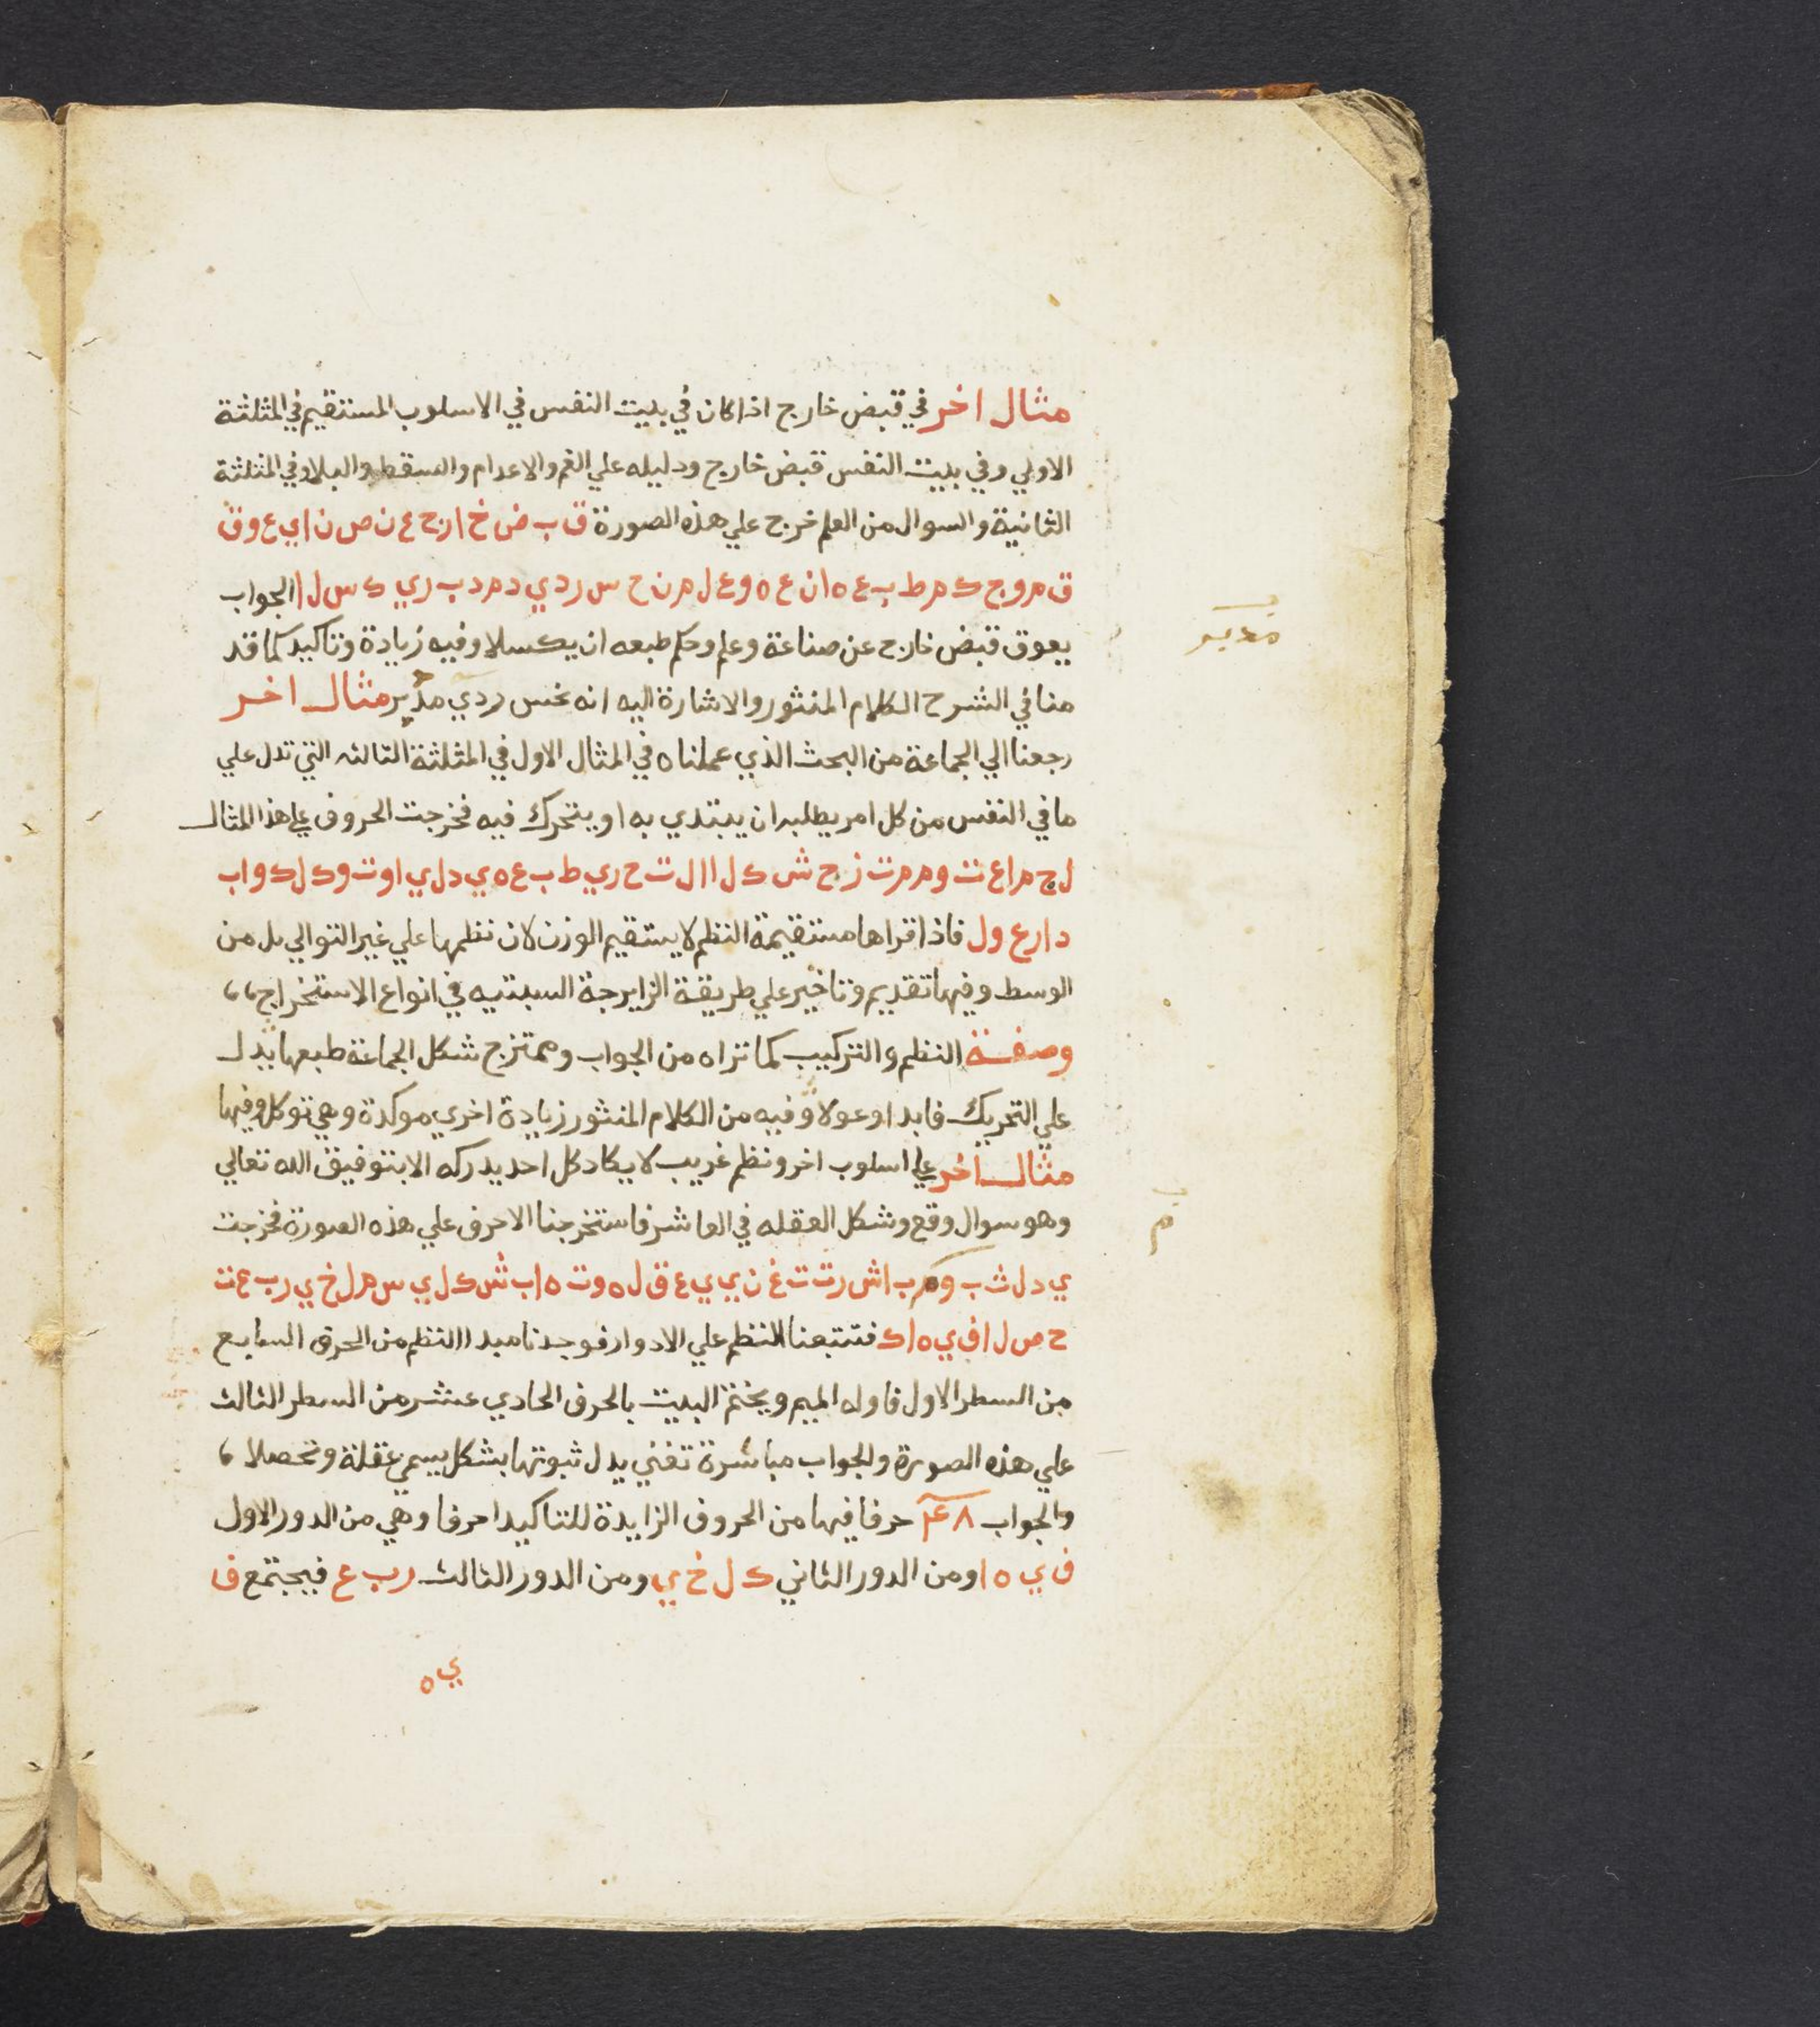 مثال اخر في قبض خارج اذا كان في بيت النفس في الاسلوب المستقيم في المثلثة
الاولي وفي بيت النفس قبض خارج ودليله علي الغم والاعدام والسقط والبلا وفي المثلثة
الثانية والسوال من العلم خرج علي هذه الصورة ق ب ض خ ا ر ج ع ن ص ن ا ي ع و ق
ق م و ج ك م ط ب ع ه ا ن ع ه و ع ل م ن ح س ر د ي د م د ب ر ي ك س ل ا الجواب
يعوق قبض خارج عن صناعة وعلم وحكم طبعه ان يكسلا وفيه زيادة وتاكيد كما قد
منا في الشرح الكلام المنثور والاشارة اليه انه نحس ردي مدبر مثال اخر
مدبر
رجعنا الي الجماعة من البحث الذي عملناه في المثال الاول في المثلثة الثالثه التي تدل علي
ما في النفس من كل امر يطلبه ان يبتدي به او يتحرك فيه فخرجت الحروف علي هذا المثال
ل ج م ا ع ت و م م ت ز ج ش ك ل ا ا ل ت ح ر ي ط ب ع ه ي د ل ي ا و ت و ك ل ك و ا ب
د ا ر ع و ل فاذا قراها مستقيمة النظم لا يستقيم الوزن لان نظمها علي غير التوالي بل من
الوسط وفيها تقديم وتاخير علي طريقة الزايرجة السبتيه في انواع الاستخراج
وصفة النظم والتركيب كما تراه من الجواب وممتزج شكل الجماعة طبعها يدل
علي التحريك فابدا وعولا وفيه من الكلام المنثور زيادة اخري موكدة وهي توكل وفيها
مثال اخر علي اسلوب اخر ونظم غريب لا يكاد كل احد يدركه الا بتوفيق الله تعالي
وهو سوال وقع وشكل العقله في العاشر فاستخرجنا الاحرف علي هذه الصورة فخرجت
م
ي د ل ث ب و م ب ا ش ر ت ت غ ن ي ي ع ق ل ه و ت ه ا ب ش ك ل ي س م ل خ ي ر ب ع ت
ح ص ل ا ف ي ه ا ك فتتبعنا النظم علي الادوار فوجدنا مبدا النظم من الحرف السابع
من السطر الاول فاوله الميم ويختم البيت بالحرف الحادي عشر من السطر الثالث
علي هذه الصورة والجواب مباشرة تغني يدل ثبوتها بشكل يسمي عقلة وتحصلا
والجواب ٤٨ حرفا فيها من الحروف الزايدة للتاكيد احرفا وهي من الدور الاول
ف ي ه ا ومن الدور الثاني ك ل خ ي ومن الدور الثالث ر ب ع فيجتمع ف
ي ه